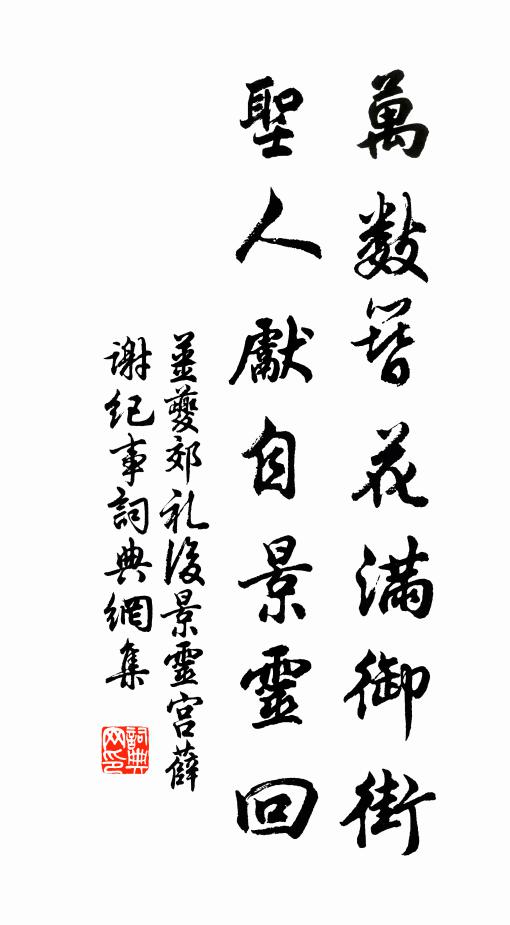 萬數簪花滿御街
聖人獻自景靈回
姜夔郊礼後景靈宮薛
謝纪事詞典網集
詞典
网印